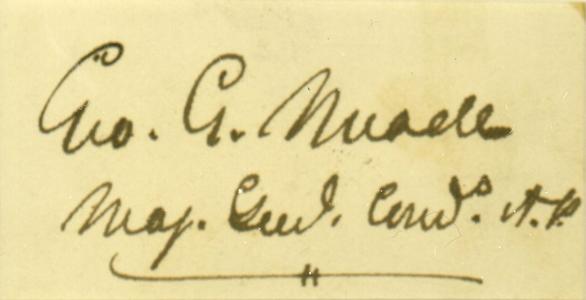 Geo. G. Meade
Maj. Genl. Comd. A.P.